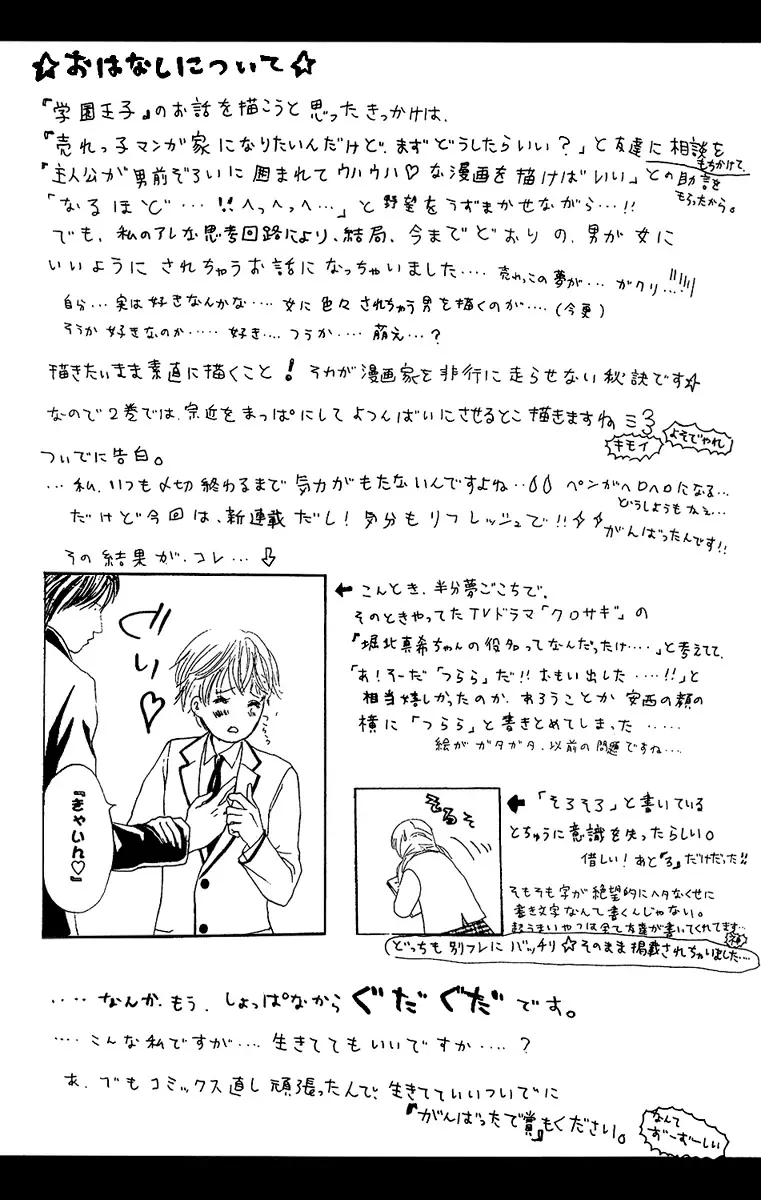 ☆おはなしについて☆
『学園王子』のお話を描こうと思ったきっかけは、
『売れっ子マンガ家になりたいんだけど、まずどうしたらいい？』と友達に相談を
もちかけて、
『主人公が男前ぞろいに囲まれてウハウハ♡な漫画を描けばいい」との助言を
もらったから。
「なるほど…!! へっへっへ…」と野望をうずまかせながら…!!
でも、私のアレな思考回路により、結局、今までどおりの、男が女に
いいようにされちゃうお話になっちゃいました…. 売れっこの夢が… ガクリ…!!
自分…実は好きなんかな…. 女に色々されちゃう男を描くのが…. (今更)
そうか好きなのか….. 好き…. つうか…. 萌え…？
描きたいまま素直に描くこと！それが漫画家を非行に走らせない秘訣です☆
なので2巻では、宗近をまっぱにしてよつんばいにさせるとこ描きますね
キモイ
よそでやれ
ついでに告白。
…私、いつも〆切終わるまで気力がもたないんですよね… ペンがヘロヘロになる…
どうしようもねぇ…
だけど今回は、新連載だし！気分もリフレッシュで!!
がんばったんです!!
その結果が、コレ…⇩
ぐい♡
つらら
『きゃいん♡』
← こんとき、半分夢ごこちで。
そのときやってたTVドラマ「クロサギ」の
『堀北真希ちゃんの役名ってなんだったけ….』と考えてて、
「あ！そーだ「つらら」だ!! おもい出した….!!」と
相当嬉しかったのか、あろうことか安西の顔の
横に「つらら」と書きとめてしまった…..
絵がガタガタ、以前の問題ですね….
そるそ
← 「そろそろ」と書いている
とちゅうに意識を失ったらしい。
惜しい！あと『ろ』だけだった!!
そもそも字が絶望的にヘタなくせに
書き文字なんて書くんじゃない。
超うまいやつは全て友達が書いてくれてます…
神
どっちも別フレにバッチリ☆そのまま掲載されちゃいました….
….なんか、もう、しょっぱなからぐだぐだです。
….こんな私ですが….生きててもいいですか….？
あ、でもコミックス直し頑張ったんで、生きてていいついでに
『がんばったで賞』もください。
なんて
ずーずーしい